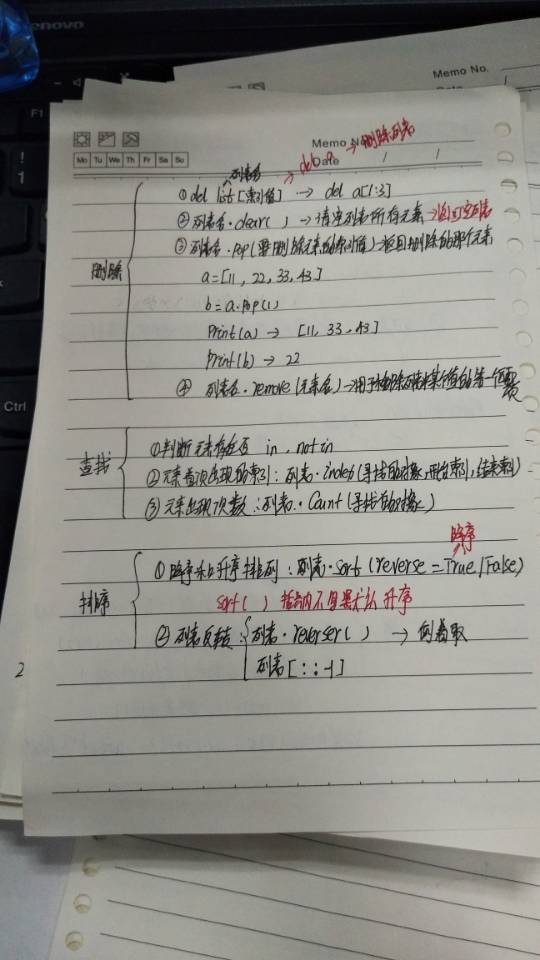 enovo
F1
Ctrl
Memo No.
Memo No.
Date
Mo Tu We Th Fr Sa Su
del a → 删除列表
列表名
删除
①del list[索引值] → del a[1:3]
②列表名.clear( ) → 清空列表所有元素 → 返回空列表
③列表名.pop(要删除元素的索引值)→返回删除的那个元素
a=[11, 22, 33, 43]
b=a.pop(1)
Print(a) → [11, 33, 43]
Print(b) → 22
④ 列表名.remove(元素名)→用于移除列表某个值的第一个匹配项
查找
①判断元素存在否 in, not in
②元素首次出现的索引:列表.index(寻找的对象,开始索引,结束索引)
③元素出现次数:列表.Count(寻找的对象)
降序
排序
①降序和升序排列:列表.sort(reverse=True/False)
sort( ) 括号内不写默认升序
②列表反转:列表.reverser( ) → 倒着取
列表[::-1]
2